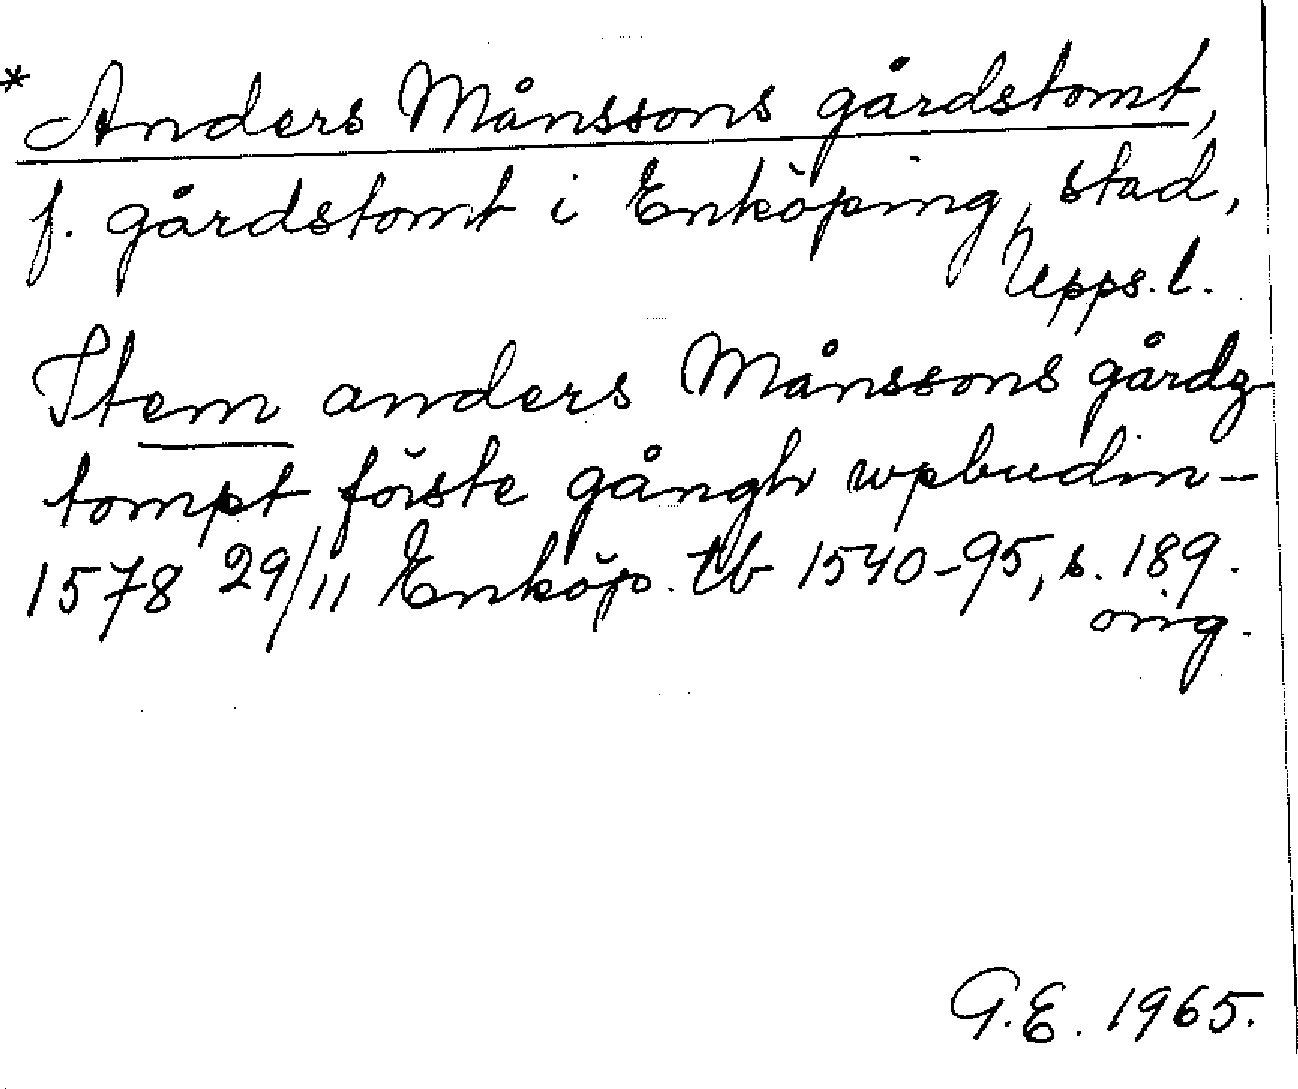 * Anders Månssons gårdstomt,
f. gårdstomt i Enköping, stad,
Upps. l.
Item anders Månssons gårdz
tompt förste gångh wpbudin -
1578 29/11 Enköp. tb 1540-95, s. 189.
orig.
G.E. 1965.